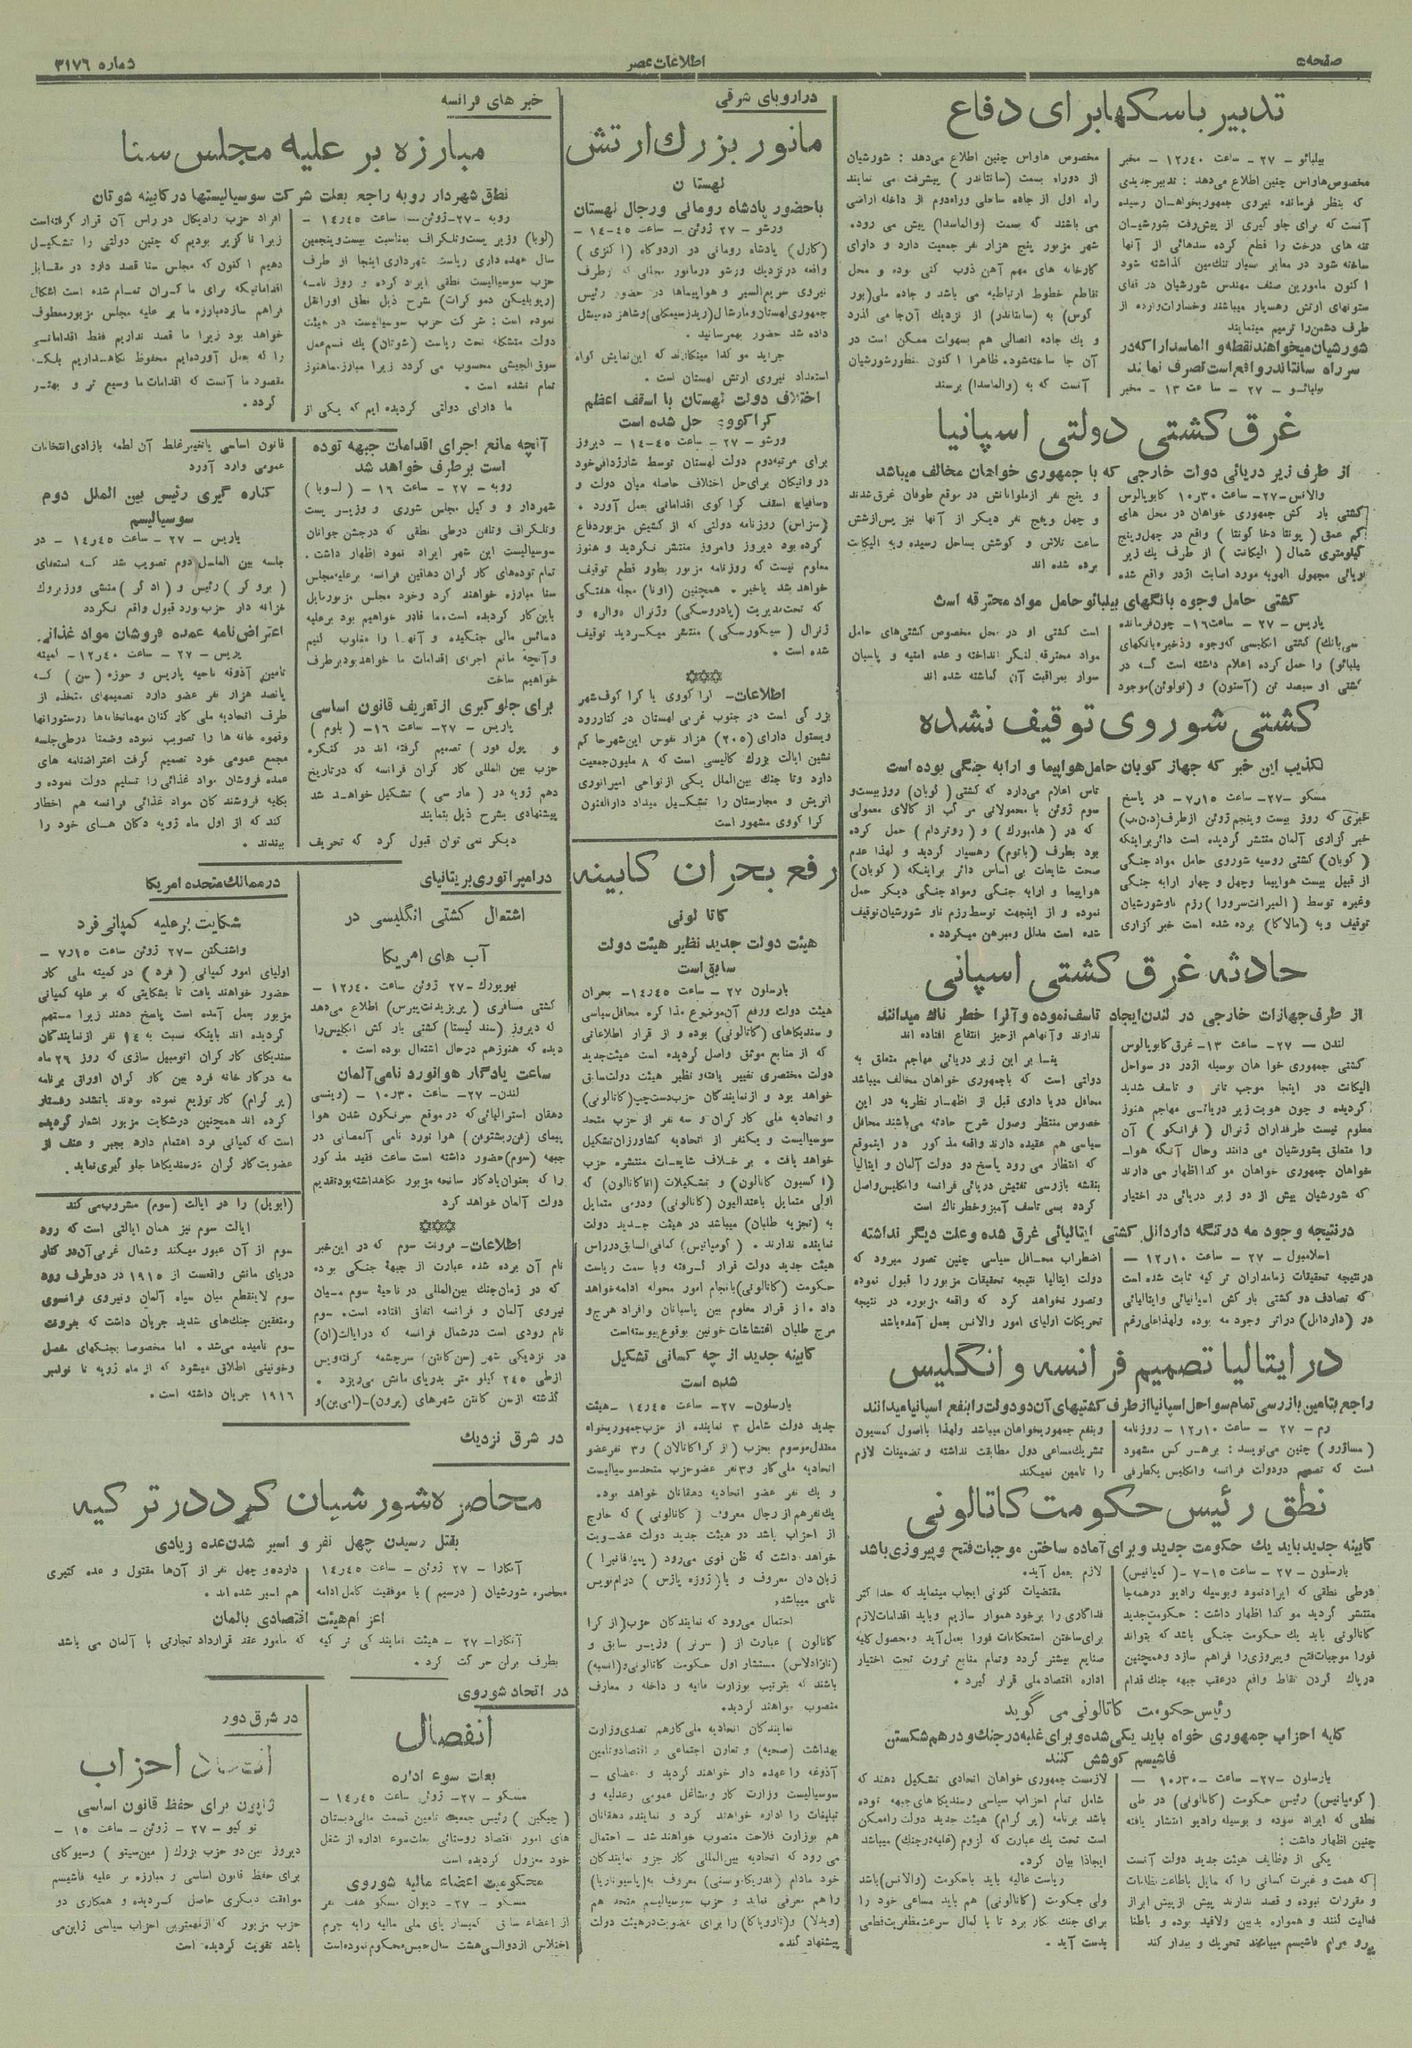 صفحه ۵
اطلاعات عصر
شماره ۳۱۷۶
تدبیر باسکها برای دفاع
بیلبائو - ۲۷ - ساعت ۱۲٫۴۰ - مخبر
مخصوص هاواس چنین اطلاع میدهد : تدبیر جدیدی
که بنظر فرمانده نیروی جمهوریخواهان رسیده
آنست که برای جلو گیری از پیش‌رفت شورشیان
تنه های درخت را قطع کرده سدهائی از آنها
ساخته شود در معابر بسیار تنگ مین گذاشته شود
اکنون مامورین صنف مهندس شورشیان در قفای
ستونهای ارتش رهسپار میباشند وخسارات وارده از
طرف دشمن را ترمیم مینمایند
شورشیان میخواهند نقطه و الماسدا را که در
سر راه سانتاندر واقع است تصرف نمایند
بیلبائو - ۲۷ - ساعت ۱۳ - مخبر
مخصوص هاواس چنین اطلاع می‌دهد : شورشیان
از دوراه بسمت (سانتاندر) پیشرفت می نمایند
راه اول از جاده ساحلی وراه‌دوم از داخله اراضی
می باشند که بسمت (والماسدا) پیش می رود.
شهر مزبور پنج هزار نفر جمعیت دارد و دارای
کارخانه های مهم آهن ذوب کنی بوده و محل
تقاطع خطوط ارتباطیه می باشد و جاده ملی(بور
گوس) به (سانتاندر) از نزدیک آن‌جا می گذرد
و یک جاده اتصالی هم بسهولت ممکن است در
آن جا ساخته‌شود. ظاهرا اکنون منظور شورشیان
آنست که به (والماسدا) برسند
غرق کشتی دولتی اسپانیا
از طرف زیر دریائی دولت خارجی که با جمهوری خواهان مخالف میباشد
والانس-۲۷- ساعت ۱۰٫۳۰ کابوپالوس
کشتی بار کش جمهوری خواهان در محل های
کم عمق (پونتا دخا کونتا) واقع در چهل‌وپنج
کیلومتری شمال (الیکانت) از طرف یک زیر
دریائی مجهول الهویه مورد اصابت اژدر واقع شده
و پنج نفر ازملوانانش در موقع طوفان غرق شدند
و چهل وپنج نفر دیگر از آنها نیز پس‌ازشش
ساعت تلاش و کوشش بساحل رسیده وبه الیکانت
برده شده اند
کشتی حامل وجوه بانگهای بیلبائو حامل مواد محترقه است
پاریس - ۲۷ - ساعت۱۶- چون‌فرمانده
سی‌بانک) کشتی انگلیسی که‌وجوه وذخیره‌بانکهای
بیلبائو) را حمل کرده اعلام داشته است که در
کشتی او سیصد تن (آستون) و (تولوئن)موجود
است کشتی او در محل مخصوص کشتی‌های حامل
مواد محترقه لنگر انداخته و عده امنیه و پاسبان
سوار بمراقبت آن گماشته شده اند
کشتی شوروی توقیف نشده
تکذیب این خبر که جهاز کوبان حامل هواپیما و ارابه جنگی بوده است
مسکو -۲۷- ساعت ۷٫۱۵- در پاسخ
خبری که روز بیست وپنجم ژوئن ازطرف(د.ن.ب)
خبر گزاری آلمان منتشر گردیده است دائربراینکه
(کوبان) کشتی روسیه شوروی حامل مواد جنگی
از قبیل بیست هواپیما وچهل و چهار ارابه جنگی
وغیره توسط (المیرانت‌سرورا) رزم ناو شورشیان
توقیف وبه (مالاگا) برده شده است خبر گزاری
تاس اعلام می‌دارد که کشتی (کوبان) روز بیست‌و
سوم ژوئن با محمولاتی مر کب از کالای معمولی
که در (هامبورک) و (روتردام) حمل کرده
بود بطرف (باتوم) رهسپار گردید و لهذا عدم
صحت شایعات بی اساس دائر براینکه (کوبان)
هواپیما و ارابه جنگی ومواد جنگی دیگر حمل
نموده و از اینجهت توسط رزم ناو شورشیان‌توقیف
شده است مدلل ومبرهن میگردد .
حادثه غرق کشتی اسپانی
از طرف جهازات خارجی در لندن ایجاد تاسف نموده و آنرا خطر ناک میدانند
لندن - ۲۷- ساعت ۱۳- غرق کابوپالوس
کشتی جمهوری خواهان بوسیله اژدر در سواحل
الیکانت در اینجا موجب تاثر و تاسف شدید
گردیده و چون هویت زیر دریائی مهاجم هنوز
معلوم نیست طرفداران ژنرال (فرانکو) آن
را متعلق بشورشیان می دانند وحال آنکه هوا-
خواهان جمهوری خواهان مو کدا اظهار می دارند
که شورشیان بیش از دو زیر دریائی در اختیار
ندارند وآنهاهم ازحیز انتفاع افتاده اند
بنا بر این زیر دریائی مهاجم متعلق به
دولتی است که باجمهوری خواهان مخالف میباشد
محافل دریا داری قبل از اظهار نظریه در این
خصوص منتظر وصول شرح حادثه می‌باشند محافل
سیاسی هم عقیده دارند واقعه مذ کور در اینموقع
که انتظار می رود پاسخ دو دولت آلمان و ایتالیا
بنقشه بازرسی تفتیش دریائی فرانسه وانگلیس‌واصل
گردد بسی تاسف آمیز وخطر ناک است
درنتیجه وجود مه درتنگه داردانل کشتی ایتالیائی غرق شده وعلت دیگر نداشته
اسلامبول - ۲۷ - ساعت ۱۲٫۱۰ -
درنتیجه تحقیقات زمامداران تر کیه ثابت شده است
که تصادف دو کشتی بار کش اسپانیائی وایتالیائی
در (داردانل) دراثر وجود مه بوده ولهذاعلی‌رغم
اضطراب محافل سیاسی چنین تصور میرود که
دولت ایتالیا نتیجه تحقیقات مزبور را قبول نموده
وتصور نخواهد کرد که واقعه مزبوره در نتیجه
تحریکات اولیای امور والانس بعمل آمده‌باشد
در ایتالیا تصمیم فرانسه و انگلیس
راجع بتامین بازرسی تمام سواحل اسپانیا از طرف کشتیهای آن دو دولت را بنفع اسپانیا میدانند
رم - ۲۷ - ساعت ۱۲٫۱۰ - روزنامه
(مساژرو) چنین می‌نویسد : برهر کس مشهود
است که تصمیم دودولت فرانسه وانگلیس یکطرفی
وبنفع جمهوریخواهان میباشد ولهذا بااصول کمسیون
تشریک‌مساعی دول مطابقت نداشته و تضمینات لازم
را تامین نمیکند
نطق رئیس حکومت کاتالونی
کابینه جدید باید یک حکومت جدید و برای آماده ساختن موجبات فتح و پیروزی باشد
بارسلون - ۲۷ - ساعت ۱۵-۷ -(کمپانیس)
درطی نطقی که ایرادنمود وبوسیله رادیو درهمه‌جا
منتشر گردید مو کدا اظهار داشت : حکومت‌جدید
کاتالونی باید یک حکومت جنگی باشد که بتواند
فورا موجبات‌فتح وپیروزی‌را فراهم سازد وهمچنین
درپاک کردن نقاط واقع درعقب جبهه جنگ قدام
لازم بعمل آید.
مقتضیات کنونی ایجاب مینماید که حدا کثر
فداکاری را برخود هموار سازیم وباید اقدامات‌لازم
برای‌ساختن استحکامات فورا بعمل‌آید ومحصول کلیه
صنایع بیشتر گردد وتمام منابع ثروت تحت اختیار
اداره اقتصادملی قرار گیرد .
رئیس حکومت کاتالونی می گوید
کلیه احزاب جمهوری خواه باید یکی شده و برای غلبه در جنگ و در هم شکستن
فاشیسم کوشش کنند
بارسلون -۲۷- ساعت ۱۰٫۳۰ -
(کومپانیس) رئیس حکومت (کاتالونی) در طی
نطقی که ایراد نموده و بوسیله رادیو انتشار یافته
چنین اظهار داشت :
یکی از وظایف هیئت جدید دولت آنست
که همت و غیرت کسانی را که مایل باطاعت نظامات
و مقررات نبوده و قصد ندارند پیش از پیش ابراز
فعالیت کنند و همواره بدبین ولاقید بوده و باطنا
پیرو مرام فاشیسم میباشند تحریک و بیدار کند
لازمست جمهوری خواهان اتحادی تشکیل دهند که
شامل تمام احزاب سیاسی وسندیکاهای‌جبهه توده
باشد برنامه (پر گرام) هیئت جدید دولت راممکن
است تحت یک عبارت که لزوم (غلبه‌درجنگ) میباشد
ایجاذا بیان کرد.
ریاست عالیه باید باحکومت (والانس)باشد
ولی حکومت (کاتالونی) هم باید مساعی خود را
برای جنک بکار برد تا با کمال سرعت‌مظفریت‌قطعی
بدست آید .
دراروپای شرقی
مانور بزرک ارتش
لهستان
باحضور پادشاه رومانی ورجال لهستان
ورشو - ۲۷ ژوئن - ساعت ۴۵-۱۴ -
(کارل) پادشاه رومانی در اردوگاه (اکنزی)
واقعه درنزدیک ورشو درمانور مجللی که ازطرف
نیروی سریع‌السیر و هواپیماها در حضور رئیس
جمهوری‌لهستان‌ومارشال(ریدزسیمگلی)وشاهزده‌میشل
داده شد حضور بهم‌رسانید .
جراید مو کدا مینگارند که این‌نمایش گواه
استعداد نیروی ارتش لهستان است .
اختلاف دولت لهستان با اسقف اعظم
کراکووی حل شده است
ورشو - ۲۷ - ساعت ۴۵-۱۴ - دیروز
برای مرتبه‌دوم دولت لهستان توسط شارژدافرخود
در واتیکان برای‌حل اختلاف حاصله میان دولت و
(سافیا) اسقف کراکوی اقداماتی بعمل آورد .
(سزاس) روزنامه دولتی که از کشیش مزبوردفاع
کرده بود دیروز وامروز منتشر نگردید و هنوز
معلوم نیست که روزنامه مزبور بطور قطع توقیف
خواهد شد یاخیر . همچنین (اونا) مجله هفتگی
که تحت‌مدیریت (پادروسکی) وژنرال «والر» و
ژنرال (سیکورسکی) منتشر میگردید توقیف
شده است .
اطلاعات- کراکووی یا کراکوف‌شهر
بزرگی است در جنوب غربی لهستان در کنار رود
ویستول دارای (۲۰۵) هزار نفوس این‌شهرحا کم
نشین ایالت بزرک کالیسی است که ۸ ملیون‌جمعیت
دارد وتا جنک بین‌الملل یکی ازنواحی امپراتوری
اتریش و مجارستان را تشکیل میداد دارالفنون
کرا کووی مشهور است
رفع بحران کابینه
کاتالونی
هیئت دولت جدید نظیر هیئت دولت
سابق است
بارسلون ۲۷ - ساعت ۱۴٫۴۵- بحران
هیئت دولت ورفع آن‌موضوع مذا کره محافل‌سیاسی
و سندیکاهای (کاتالونی) بوده و از قرار اطلاعاتی
که از منابع موثق واصل گردیده است هیئت‌جدید
دولت مختصری تغییر یافته‌و نظیر هیئت دولت‌سابق
خواهد بود و ازنمایندگان حزب‌دست‌چپ(کاتالونی)
و اتحادیه ملی کار گران و سه نفر از حزب متحد
سوسیالیست و یکنفر از اتحادیه کشاورزان‌تشکیل
خواهد یافت . بر خلاف شایعات منتشره حزب
(اکسیون کاتالون) و تشکیلات (اتاکاتالون) که
اولی متمایل باعتدالیون (کاتالونی) ودومی متمایل
به (تجزیه طلبان) میباشد در هیئت جدید دولت
نماینده ندارند . (کومپانیس) کمافی‌السابق درراس
هیئت جدید دولت قرار گرفته وبا سمت ریاست
حکومت (کاتالونی) بانجام امور محوله ادامه‌خواهد
داد . از قرار معلوم بین پاسبانان وافراد هرج‌و
مرج طلبان اغتشاشات خونین بوقوع پیوسته‌است
کابینه جدید از چه کسانی تشکیل
شده است
بارسلون- ۲۷- ساعت ۱۴٫۴۵ -هیئت
جدید دولت شامل ۳ نماینده از حزب‌جمهوریخواه
معتدل‌موسوم بحزب (ازکراکاتالان) و۳ نفرعضو
اتحادیه ملی کار و۳نفر عضوحزب متحدسوسیالیست
و یک نفر عضو اتحادیه دهقانان خواهد بود.
یک‌نفرهم از رجال معروف (کاتالونی) که خارج
از احزاب باشد در هیئت جدید دولت عضویت
خواهد داشت که ظن قوی می‌رود (پیپوفابرا)
زبان‌دان معروف و یا(ژوزه پازس) درام‌نویس
نامی میباشد,
احتمال می‌رود که نمایندگان حزب(از کرا
کاتالون) عبارت از (سرنر) وزیر سابق و
(تارادلاس) مستشار اول حکومت کاتالونی‌و(انسپه)
باشند که بترتیب بوزارت مالیه و داخله و معارف
منصوب خواهند گردید.
نمایندگان اتحادیه ملی‌کارهم تصدی‌وزارت
بهداشت (صحیه) و تعاون اجتماعی و اقتصادوتامین
آذوغه راعهده دار خواهند گردید و اعضای -
سوسیالیست وزارت کار ومشاغل عمومی وعدلیه و
تبلیغات را اداره خواهند کرد و نماینده دهقانان
هم بوزارت فلاحت منصوب خواهند شد - احتمال
می رود که اتحادیه بین‌المللی کار جزو نمایندگان
خود مادام (فدریکاونسنی) معروف به(پاسیوناریا)
را هم معرفی نماید و حزب سوسیالیسم متحد هم
(ویدلا) و(تاروباکا) را برای عضویت‌درهیئت دولت
پیشنهاد کند.
خبر های فرانسه
مبارزه بر علیه مجلس سنا
نطق شهردار روبه راجع بعلت شرکت سوسیالیستها در کابینه شوتان
روبه -۲۷-ژوئن- ساعت ۱۴٫۴۵ -
(لوبا) وزیر پست‌وتلگراف بمناسبت بیست‌وپنجمین
سال عهده داری ریاست شهرداری اینجا از طرف
حزب سوسیالیست نطقی ایراد کرده و روز نامه
(رپوبلیکن دمو کرات) بشرح ذیل نطق اورانقل
نموده است : شرکت حزب سوسیالیست در هیئت
دولت متشکله تحت ریاست (شوتان) یک قسم‌عمل
سوق‌الجیشی محسوب می گردد زیرا مبارزه‌ماهنوز
تمام نشده است .
ما دارای دولتی گردیده ایم که یکی از
افراد حزب رادیکال در راس آن قرار گرفته‌است
زیرا ناگزیر بودیم که چنین دولتی را تشکیل
دهیم اکنون که مجلس سنا قصد دارد در مقابل
اقداماتیکه برای ما گران تمام شده است اشکال
فراهم سازدمبارزه ما بر علیه مجلس مزبور معطوف
خواهد بود زیرا ما قصد نداریم فقط اقداماتی
را که بعمل آورده‌ایم محفوظ نگاهداریم بلکه
مقصود ما آنست که اقدامات ما وسیع تر و بهتر
گردد .
آنچه مانع اجرای اقدامات جبهه توده
است برطرف خواهد شد
روبه - ۲۷ - ساعت ۱۶ - (لوبا)
شهردار و و کیل مجلس شوری و وزیر پست
وتلگراف وتلفن درطی نطقی که درجشن جوانان
سوسیالیست این شهر ایراد نمود اظهار داشت.
تمام توده‌های کار گران دهاقین فرانسه برعلیه‌مجلس
سنا مبارزه خواهند کرد وخود مجلس مزبورمایل
باین‌کار گردیده است. ما قادر خواهیم بود برعلیه
دسائس مالی جنگیده و آنها را مغلوب کنیم
وآنچه مانع اجرای اقدامات ما خواهدبود برطرف
خواهیم ساخت
برای جلوگیری از تعریف قانون اساسی
پاریس - ۲۷- ساعت ۱۶- (بلوم)
و (پول فور) تصمیم گرفته اند در کنگره
حزب بین المللی کار گران فرانسه که درتاریخ
دهم ژویه در (مارسی) تشکیل خواهد شد
پیشنهادی بشرح ذیل بنمایند
دیگر نمی توان قبول کرد که تحریف
قانون اساسی یا تغییر غلط آن لطمه بازادی انتخابات
عمومی وارد آورد
کناره گیری رئیس بین الملل دوم
سوسیالیسم
پاریس - ۲۷ - ساعت ۱۴٫۴۵ - در
جلسه بین الملل دوم تصویب شد که استعفای
(برو کر) رئیس و (اد لر) منشی ووزبروک
خزانه دار حزب مورد قبول واقع نگردد
اعتراض‌نامه عمده فروشان مواد غذائی.
پاریس - ۲۷ - ساعت ۱۲٫۴۰- کمیته
تامین آذوقه ناحیه پاریس و حوزه (سن) که
پانصد هزار نفر عضو دارد تصمیمهای متخذه از
طرف اتحادیه ملی کار کنان مهمانخانه‌ها رستورانها
وقهوه خانه ها را تصویب نموده وضمنا درطی‌جلسه
مجمع عمومی خود تصمیم گرفت اعتراضنامه های
عمده فروشان مواد غذائی‌را تسلیم دولت نموده و
بکلیه فروشند گان مواد غذائی فرانسه هم اخطار
کند که از اول ماه ژویه دکان های خود را
ببندند .
درامپراتوری بریتانیای
اشتعال کشتی انگلیسی در
آب های امریکا
نیویورک -۲۷ ژوئن ساعت ۱۲٫۴۰ -
کشتی مسافری (پریزیدنت‌پیرس) اطلاع می‌دهد
که دیروز (سند کیستا) کشتی بار کش انگلیس‌را
دیده که هنوزهم درحال اشتعال بوده است .
ساعت یادگار هوانورد نامی آلمان
لندن -۲۷- ساعت ۱۰٫۳۰ - (وینسی
دهقان استرالیائی‌که درموقع سرنگون شدن هوا
پیمای (فن‌ریشتوفن) هوا نورد نامی آلمانی در
جبهه (سوم)حضور داشته است ساعت فقید مذ کور
را که بعنوان‌یادگار سانحه مزبور نگاهداشته‌بودتقدیم
دولت آلمان خواهد کرد
اطلاعات- فرونت سوم که در این‌خبر
نام آن برده شده عبارت از جبهه جنگی بوده
که در زمان‌جنک بین‌المللی در ناحیه سوم میان
نیروی آلمان و فرانسه اتفاق افتاده است. سوم
نام رودی است درشمال فرانسه که درایالت(ان)
در نزدیکی شهر (سن‌کانتن) سرچشمه گرفته‌وپس
ازطی ۲۴۵ کیلو متر بدریای مانش می‌ریزد .
گذشته ازسن کانتن شهرهای (پرون)-(امی‌ین)و
درممالک متحده امریکا
شکایت بر علیه کمپانی فرد
واشنگتن -۲۷ ژوئن ساعت ۷٫۱۵ -
اولیای امور کمپانی (فرد) در کمیته ملی کار
حضور خواهند یافت تا بشکایتی که بر علیه کمپانی
مزبور بعمل آمده است پاسخ دهند زیرا متهم
گردیده اند باینکه نسبت به ۱۴ نفر ازنمایندگان
سندیکای کار گران اتومبیل سازی که روز ۲۶ ماه
مه درکار خانه فرد بین کار گران اوراق برنامه
(پر گرام) کار توزیع نموده بودند باتشدد رفتار
کرده اند همچنین درشکایت مزبور اشعار گردیده
است که کمپانی فرد اهتمام دارد بجبر و عنف از
عضویت‌کار گران درسندیکاها جلو گیری‌نماید.
(ابویل) را در ایالت (سوم) مشروب می کند
ایالت سوم نیز همان ایالتی است که رود
سوم از آن عبور میکند وشمال غربی آن‌در کنار
دریای مانش واقعست از ۱۹۱۵ در دوطرف رود
سوم لاینقطع میان سپاه آلمان ونیروی فرانسوی
ومتفقین جنک‌های شدید جریان داشت که فرونت
سوم نامیده می‌شد. اما مخصوصا بجنکهای مفصل
وخونینی اطلاق میشود که ازماه ژویه تا نوامبر
۱۹۱۶ جریان داشته است.
در شرق نزدیک
محاصره شورشیان کرد در ترکیه
بقتل رسیدن چهل نفر و اسیر شدن عده زیادی
آنکارا - ۲۷ ژوئن - ساعت ۱۴٫۴۵
محاصره شورشیان (درسیم) با موفقیت کامل ادامه
دارد و چهل نفر از آن‌ها مقتول و عده کثیری
هم اسیر شده اند.
اعزام هیئت اقتصادی بالمان
آنکارا- ۲۷ - هیئت نمایندگی تر کیه که مامور عقد قرارداد تجارتی با آلمان می باشد
بطرف برلن حر کت کرد .
در اتحاد شوروی
انفصال
بعلت سوء اداره
مسکو - ۲۷- ژوئن ساعت ۱۴٫۴۵ -
(چیکین) رئیس جمعیت تامین قسمت مالی‌دبستان
های امور اقتصاد روستائی بعلت‌سوء اداره از شغل
خود معزول گردیده است
محکومیت اعضاء مالیه شوروی
مسکو - ۲۷- دیوان مسکو هفت نفر
از اعضاء سابق کمیسار یای ملی مالیه را به جرم
اختلاس ازدوالی هشت سال حبس محکوم‌نموده‌است
در شرق دور
احزاب
ژاپون برای حفظ قانون اساسی
تو کیو - ۲۷ - ژوئن - ساعت ۱۵ -
دیروز بین دو حزب بزرک (مین‌سیتو) وسیوکای
برای حفظ قانون اساسی و مبارزه بر علیه فاشیسم
موافقت دیگری حاصل گردیده و همکاری دو
حزب مزبور که ازمهمترین احزاب سیاسی ژاپن‌می
باشد تقویت گردیده است